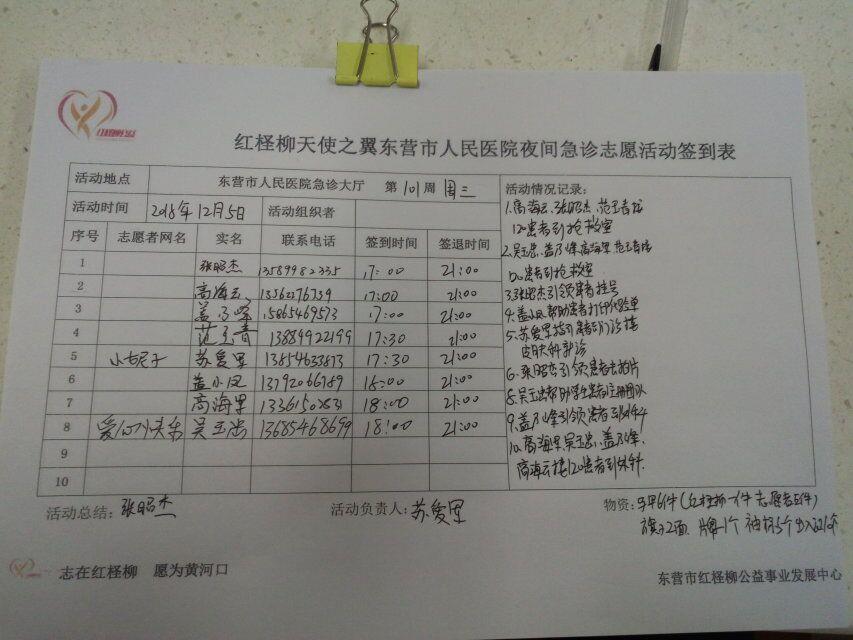 红柽柳天使之翼东营市人民医院夜间急诊志愿活动签到表
活动地点 东营市人民医院急诊大厅 第101周 周三
活动时间 2018年12月5日 活动组织者
序号 志愿者网名 实名 联系电话 签到时间 签退时间
1 张昭杰 13589982335 17:00 21:00
2 高海云 13562276739 17:00 21:00
3 盖乃峰 15865469573 17:00 21:00
4 范玉青 13889922199 17:30 21:00
5 苏爱军 13854633873 17:30 21:00
6 盖小凤 13792066789 18:00 21:00
7 高海军 18:00 21:00
8 吴玉忠 13685468699 18:00 21:00
9
10
活动情况记录:
1.高海云、张昭杰、范玉青接
120患者到抢救室
2.吴玉忠、盖乃峰高海军范玉青接
120患者到抢救室
3.张昭杰引领患者挂号
4.盖小凤帮助患者打印化验单
5.苏爱军指引患者到门诊楼
皮肤科就诊
6.张昭杰引领患者去拍片
8.吴玉忠帮助学生患者
9.盖乃峰引领患者到外科
10.高海军吴玉忠、盖乃峰、
高海云接120患者到外科
活动总结:张昭杰
活动负责人:苏爱军
物资:马甲6件(红柽柳一件 志愿者五件)
旗子2面、牌1个 袖标5个
志在红柽柳 愿为黄河口
东营市红柽柳公益事业发展中心